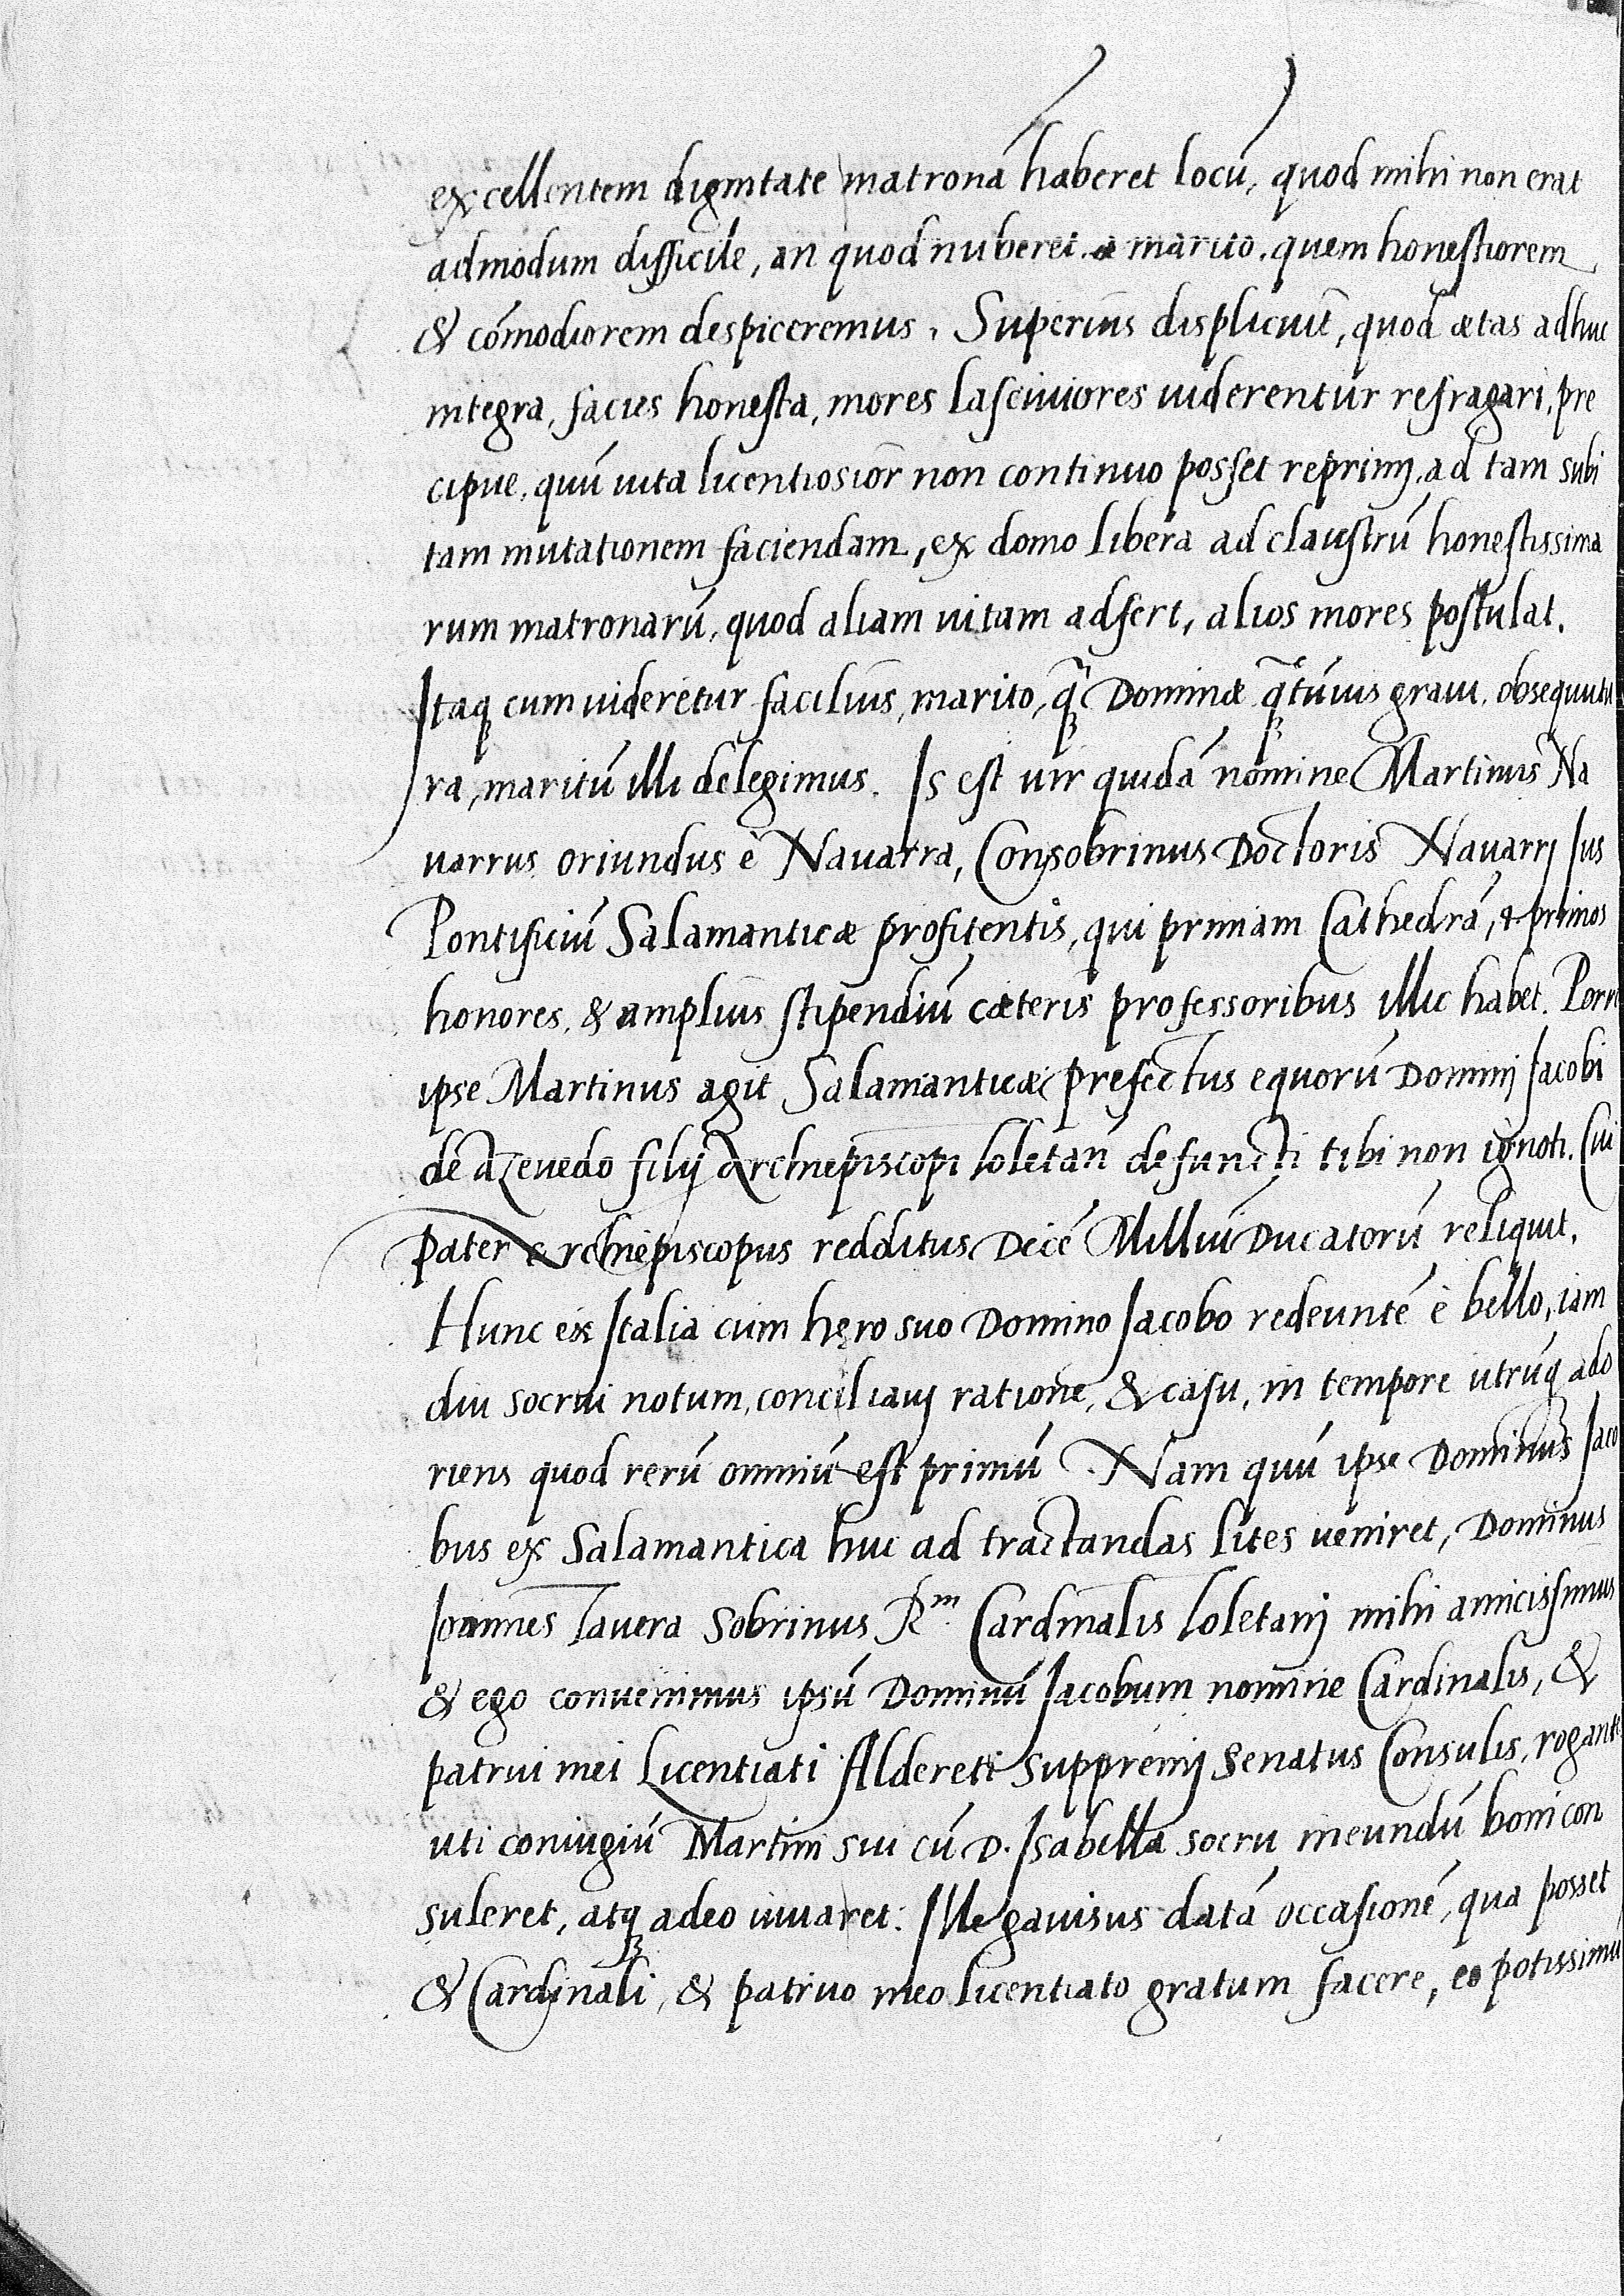 excellentem dignitate matronã haberet locũ, quod mihi non erat
admodum difficile, an quod nuberet marito, quem honestiorem
& cõmodiorem despiceremus. Superius displicuit, quod ætas adhuc
integra, facies honesta, mores lasciuiores uiderentur refragari, pre
cipue, quũ uita licentiosior non continuo posset reprimj, ad tam subi
tam mutationem faciendam, ex domo libera ad claustrũ honestissima
rum matronarũ, quod aliam uitam adfert, alios mores postulat.
Itaq; cum uideretur facilius, marito, q̃ Dominæ q̃tũuis graui, obsequutu
ra, maritũ illi delegimus. Is est uir quidã nomine Martinus Na
uarrus oriundus è Nauarra, Consobrinus Doctoris Nauarrj Ius
Pontificiũ Salamanticæ profitentis, qui primam Cathedrã, & primos
honores, & amplius stipendiũ cæteris professoribus illic habet. Porro
ipse Martinus agit Salamanticæ prefectus equorũ Dominj Iacobi
de Azeuedo filij Archiepiscopi Toletañ defuncti tibi non ignoti. Cui
Pater Archiepiscopus redditus Decẽ Milliũ Ducatorũ reliquit.
Hunc ex Italia cum hero suo Domino Iacobo redeuntẽ è bello, iam
diu socrui notum, conciliauj ratione, & casu, in tempore utrũq; ado
riens quod rerũ omniũ est primũ. Nam quũ ipse Dominus Iaco
bus ex Salamantica huc ad tractandas lites ueniret, Dominus
Ioannes Tauera Sobrinus R.ᵐⁱ Cardinalis Toletanj mihi amicissimus
& ego conuenimus ipsũ Dominũ Iacobum nomine Cardinalis, &
patrui mei Licentiati Aldereti Suppremj Senatus Consulis, rogantes
uti coniugiũ Martini sui cũ D. Isabella socru ineundũ boni con
suleret, atq; adeo iuuaret. Ille gauisus datã occasionẽ, qua posset
& Cardinali, & patruo meo licentiato gratum facere, eo potissimũ